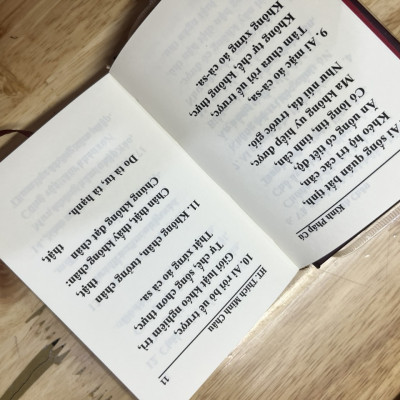 Kinh Pháp Cú
Ai sống quán bất tịnh,
Khéo hộ trì các căn,
Ăn uống có tiết độ,
Có lòng tin, tinh cần,
Ma không uy hiếp được,
Như núi đá, trước gió.
9. Ai mặc áo cà-sa,
Tâm chưa rời uế trược,
Không tự chế, không thực,
Không xứng áo cà-sa.
HT. Thích Minh Châu
11
10. Ai rời bỏ uế trược,
Giới luật khéo nghiêm trì,
Tự chế, sống chơn thực,
Thật xứng áo cà sa.
11. Không chân, tưởng chân
thật,
Chân thật, thấy không chân:
Chúng không đạt chân
thật,
Do tà tư, tà hạnh.